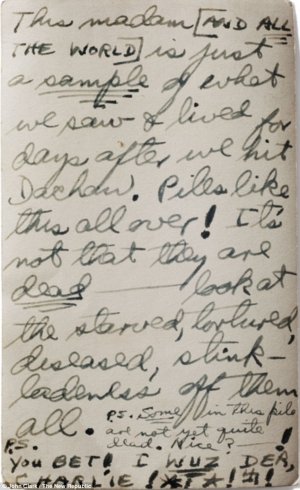 This madam [AND ALL
THE WORLD] is just
a sample of what
we saw & lived for
days after we hit
Dachau. Piles like
this all over! It's
not that they are
dead — look at
the starved, tortured,
diseased, stink-
ladeness off them
all. P.S. Some in this pile
are not yet quite
dead. Nice?
P.S.
YOU BET! I WUZ DER,
!
© John Clark / The New Republic